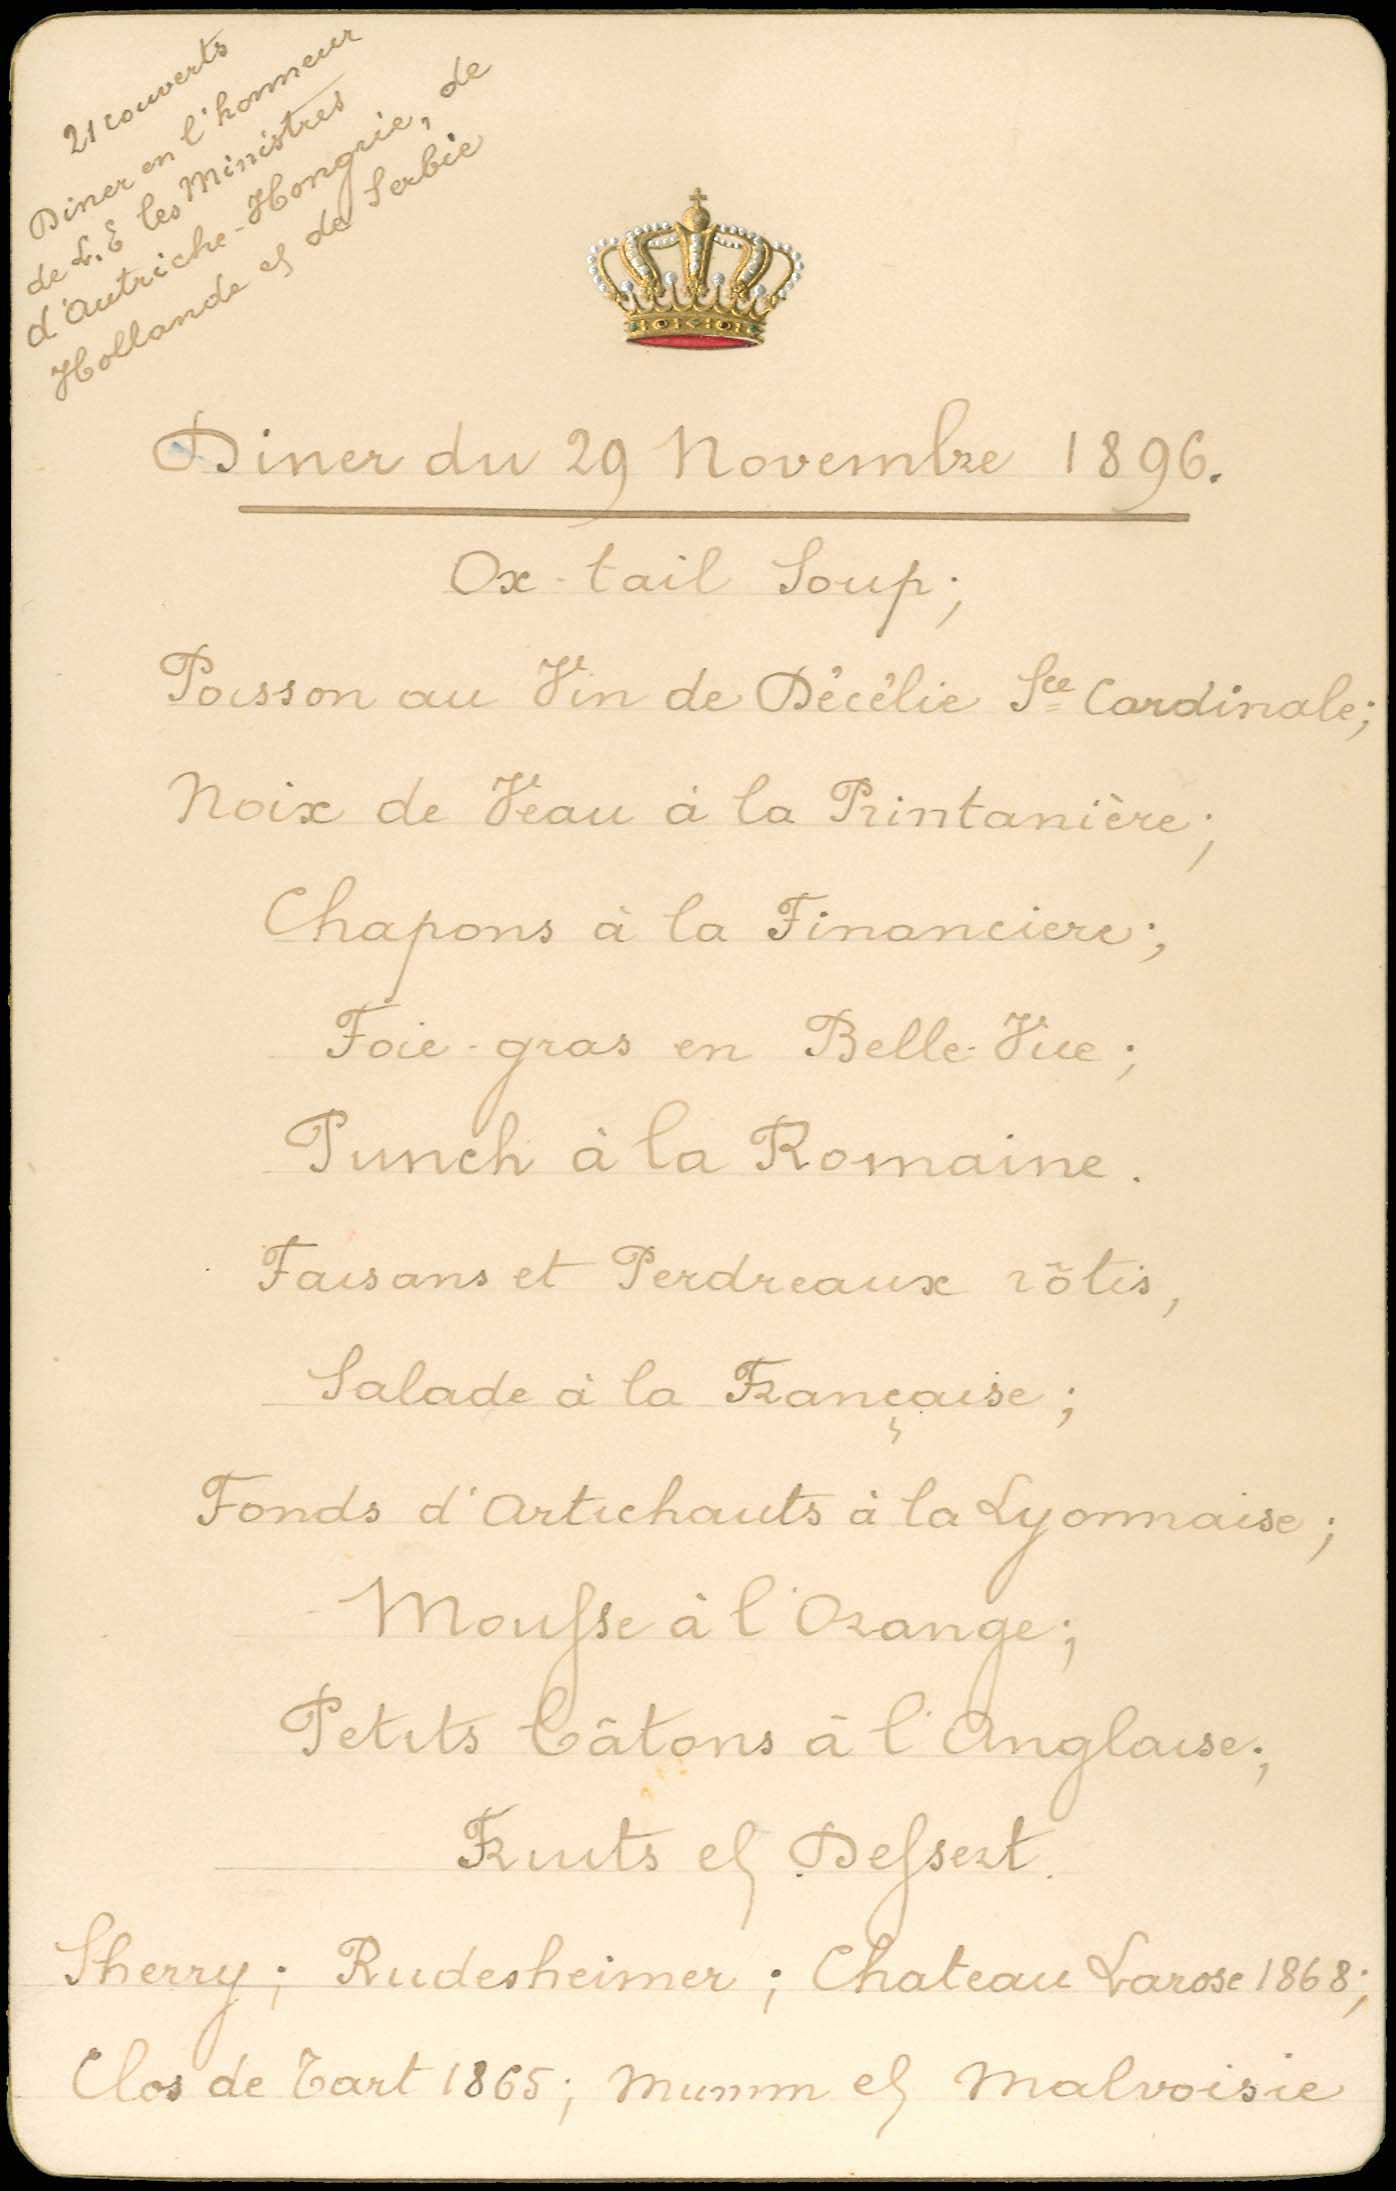 21 couverts
Diner en l'honneur
de L.E les Ministres
d'Autriche-Hongrie, de
Hollande et de Serbie
Diner du 29 Novembre 1896.
Ox-tail Soup;
Poisson au Vin de Décélie Sce Cardinale;
Noix de Veau à la Printanière;
Chapons à la Financiere;
Foie-gras en Belle-Vue;
Punch à la Romaine.
Faisans et Perdreaux rôtis,
Salade à la Française;
Fonds d'Artichauts à la Lyonnaise;
Mousse à l'Orange;
Petits Bâtons à l'Anglaise;
Fruits et Dessert.
Sherry; Rudesheimer; Chateau Larose 1868;
Clos de Tart 1865; Mumm et Malvoisie